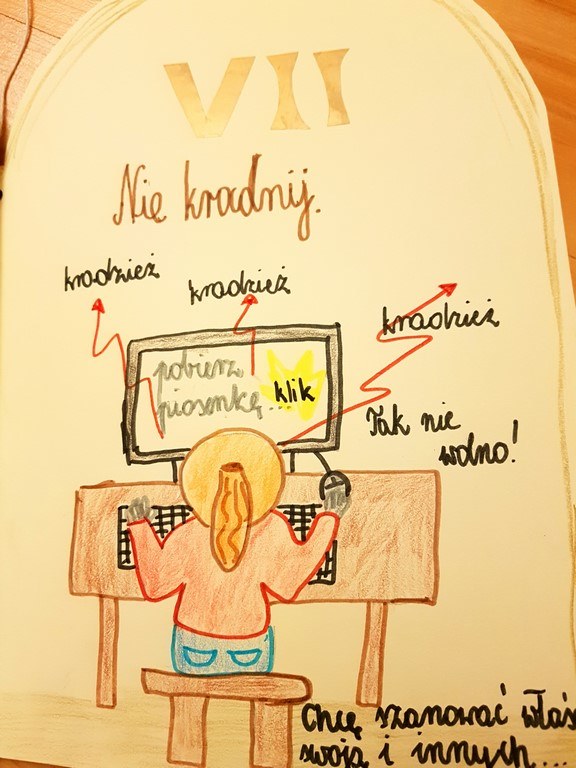 VII
Nie kradnij.
kradzież
kradzież
kradzież
pobierz
piosenkę...
klik
Tak nie
wolno!
Chcę szanować
swoją i innych...